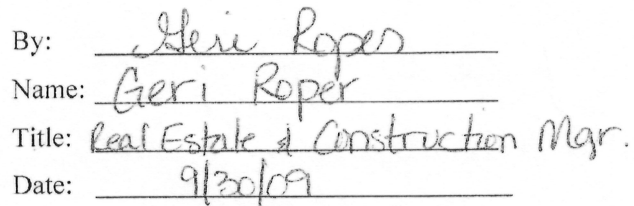 By: Geri Roper
Name: Geri Roper
Title: Real Estate & Construction Mgr.
Date: 9/30/09